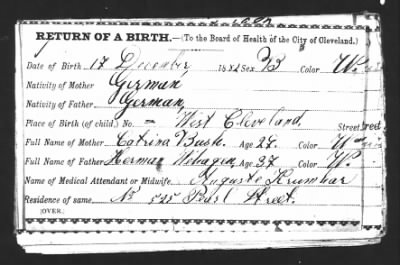 RETURN OF A BIRTH.—(To the Board of Health of the City of Cleveland.)
Date of Birth 17 December 1882 Sex B Color W
Nativity of Mother German
Nativity of Father German
Place of Birth (of child.) No. – West Cleveland Street
Full Name of Mother Catrina Bush. Age 28. Color W
Full Name of Father Herman Age 37 Color W.
Name of Medical Attendant or Midwife, Auguste
Residence of same No 525 Pearl Street.
(OVER.)